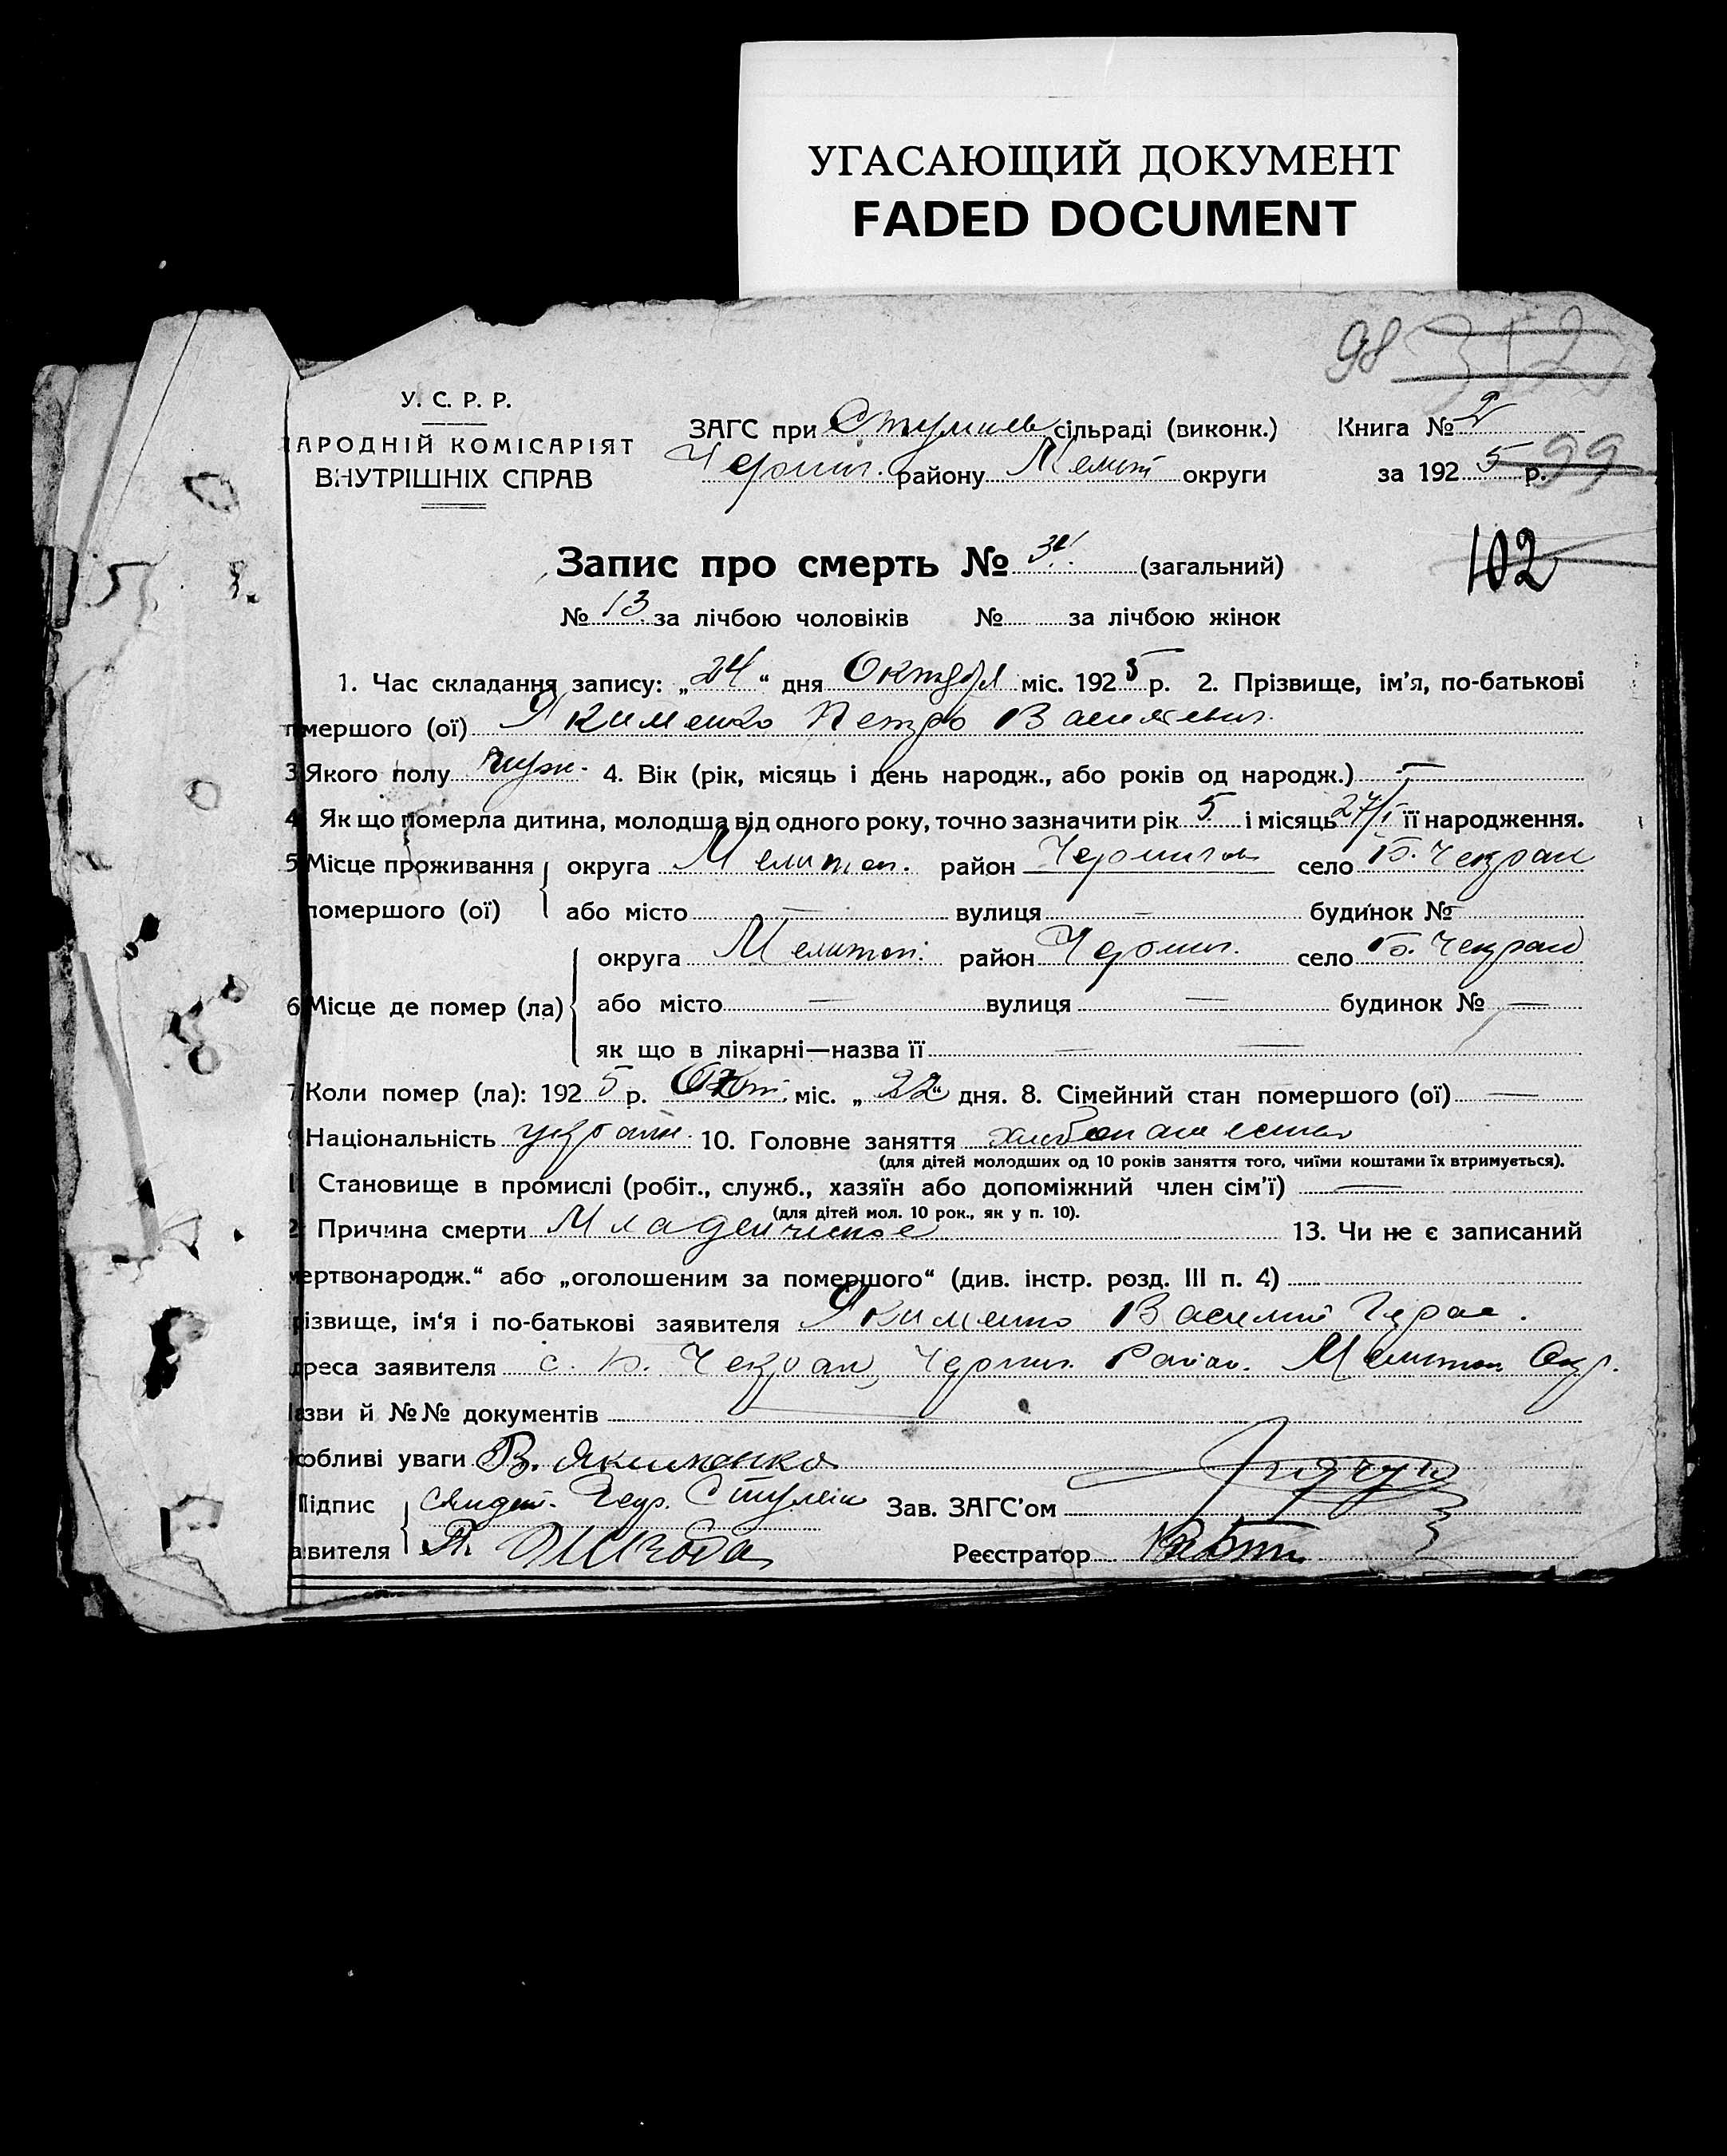 УГАСАЮЩИЙ ДОКУМЕНТ
FADED DOCUMENT
98 312
У. С. Р. Р.
НАРОДНІЙ КОМІСАРІЯТ
ВНУТРІШНІХ СПРАВ
ЗАГС при сільраді (виконк.) Книга № 2
Черниг. району Мелит округи за 1925 р. 99
Запис про смерть № (загальний) 102
№ 13 за лічбою чоловіків № за лічбою жінок
1. Час складання запису: „24“ дня Октября міс. 1925 р. 2. Прізвище, ім’я, по-батькові
мершого (ої) Якименко Петро Васильевич
3 Якого полу муж. 4. Вік (рік, місяць і день народж., або років од народж.) —
4 Як що померла дитина, молодша від одного року, точно зазначити рік 5 і місяць 27/I її народження.
5 Місце проживання округа Мелитоп. район Чернигов село Б. Чекрак
помершого (ої) або місто — вулиця — будинок № —
округа Мелитоп. район Черниг. село Б. Чекрак
6 Місце де помер (ла) або місто — вулиця — будинок № —
як що в лікарні—назва її — —
7 Коли помер (ла): 1925 р. Окт. міс. „22“ дня. 8. Сімейний стан помершого (ої) —
9 Національність украин. 10. Головне заняття хлебопашество
(для дітей молодших од 10 років заняття того, чиїми коштами їх втримується).
Становище в промислі (робіт., служб., хазяїн або допоміжний член сім’ї) —
(для дітей мол. 10 рок., як у п. 10).
2 Причина смерти Младенческое 13. Чи не є записаний
мертвонародж.“ або „оголошеним за помершого“ (див. інстр. розд. III п. 4)
різвище, ім‘я і по-батькові заявителя Якименко Василий Герас.
дреса заявителя с. Б. Чекрак, Черниг. Район. Мелитоп. Окр.
азви й №№ документів
собливі уваги В. Якименко
Підпис Зав. ЗАГС’ом
авителя Реєстратор